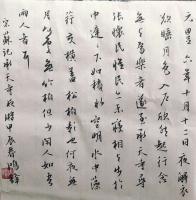 元豐六年十月十二日夜解衣
欲睡月色入户欣然起行念
無與樂者遂至承天寺尋
張懷民懷民亦未寢相與步於
中庭下如積水空明水中藻
荇交横蓋竹柏影也何夜無
月何處無竹柏但少閑人如吾
兩人者耳
宋蘇記承天寺夜遊甲辰春